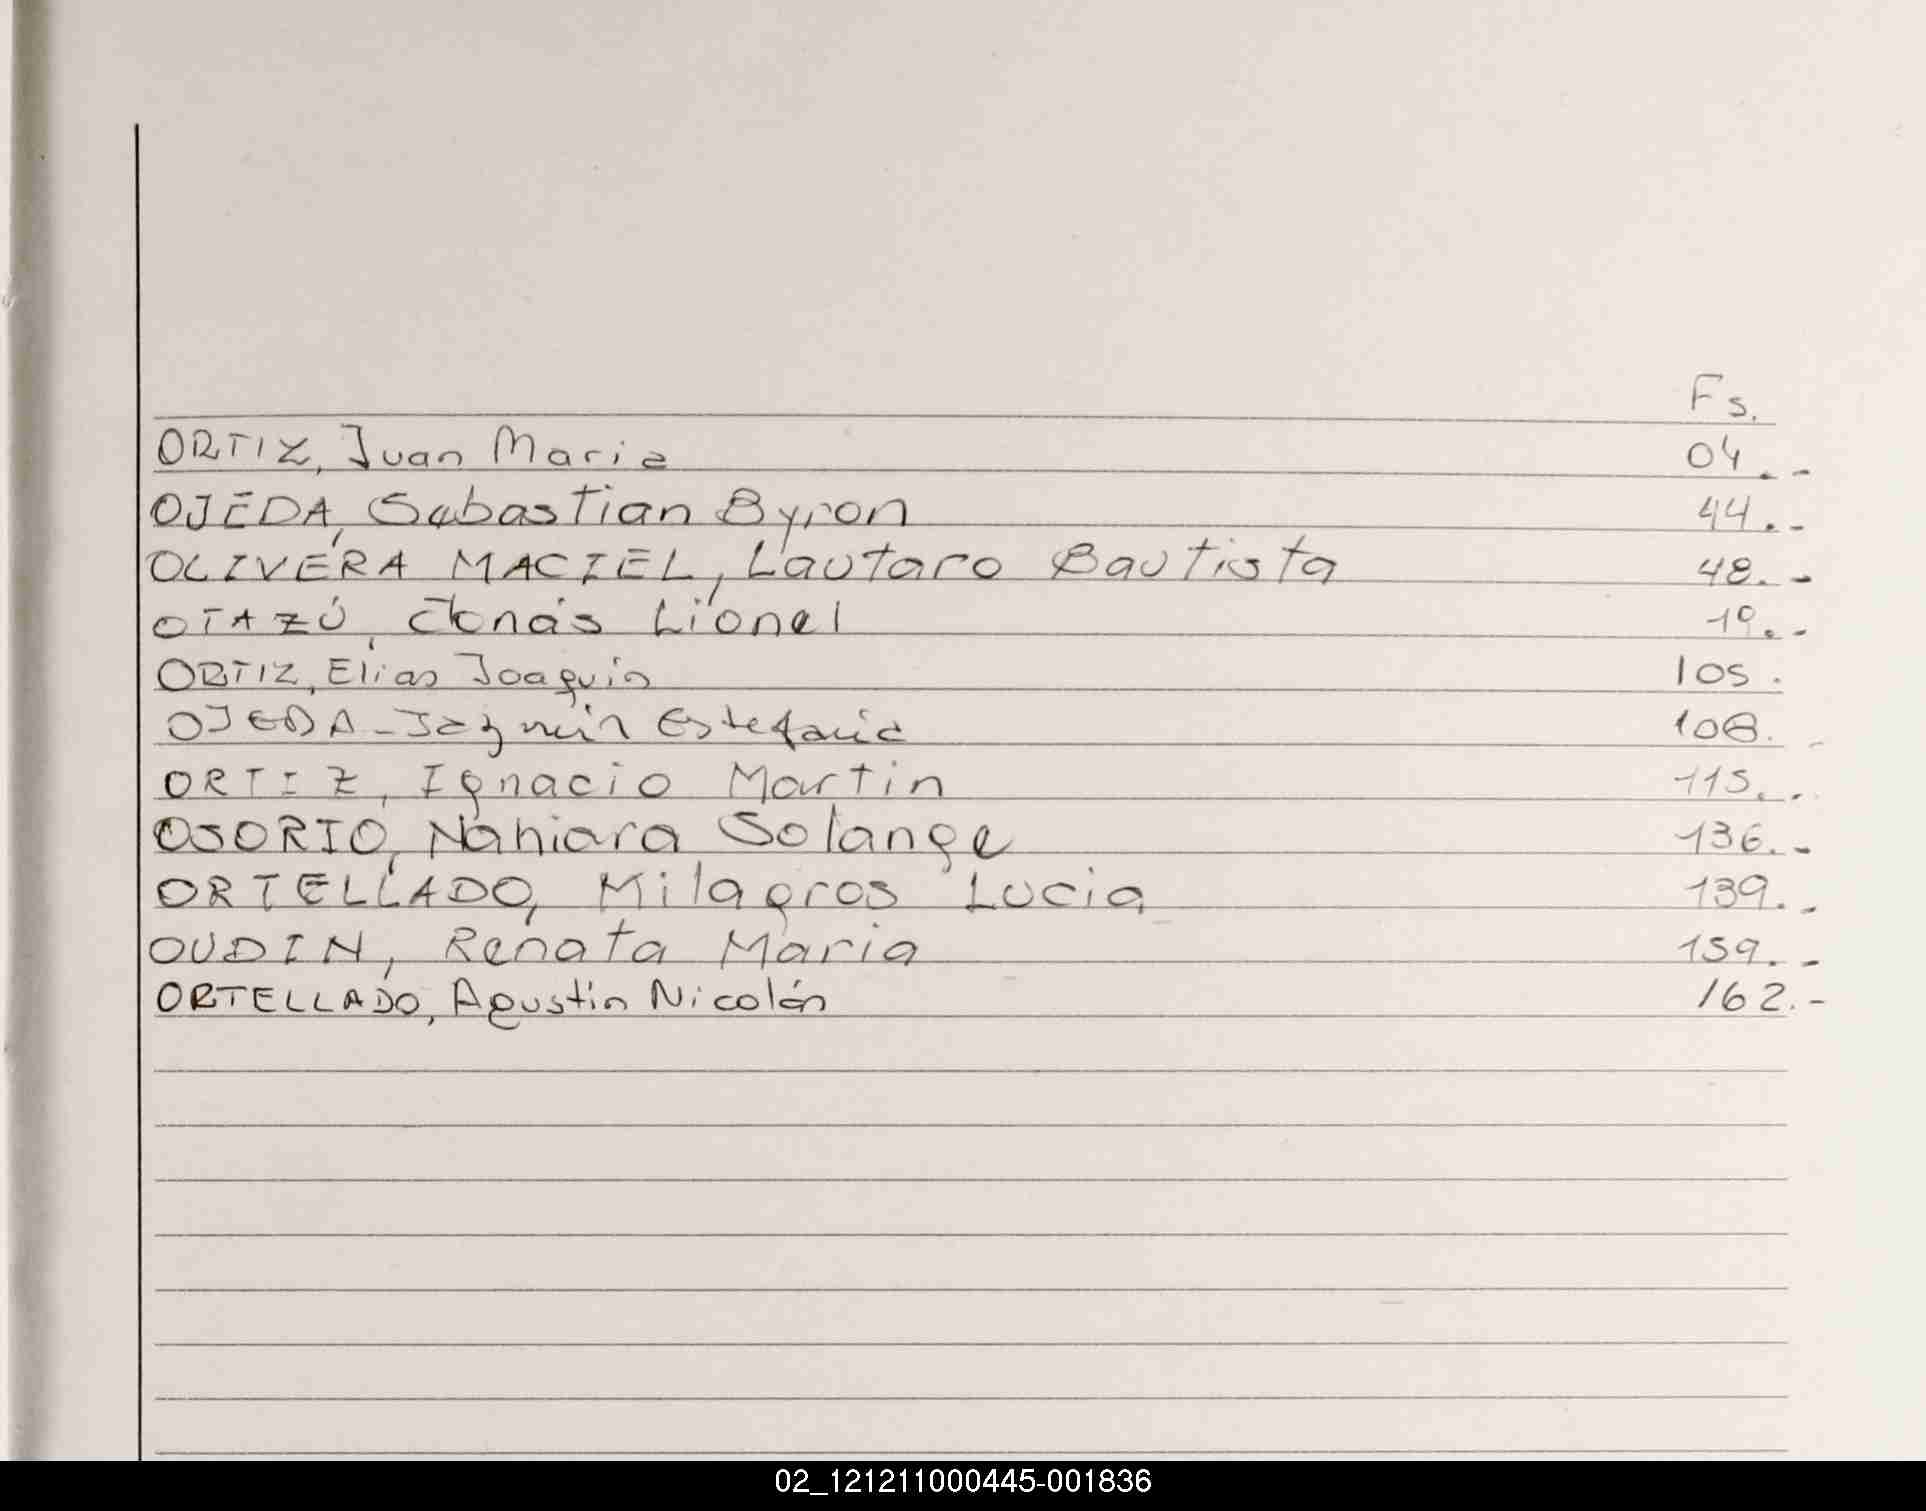 Fs.
ORTIZ, Juan Maria 04.-
OJEDA, Sebastian Byron 44.-
OLIVERA MACIEL, Lautaro Bautista 48.-
OTAZÚ, Jonás Lionel 19.-
ORTIZ, Elias Joaquin 105.
OJEDA - Jazmin Estefania 108.
ORTIZ, Ignacio Martin 115.-
OSORIO, Nahiara Solange 136.-
ORTELLADO, Milagros Lucia 139.-
OUDIN, Renata Maria 159.-
ORTELLADO, Agustin Nicolás 162.-
02_121211000445-001836